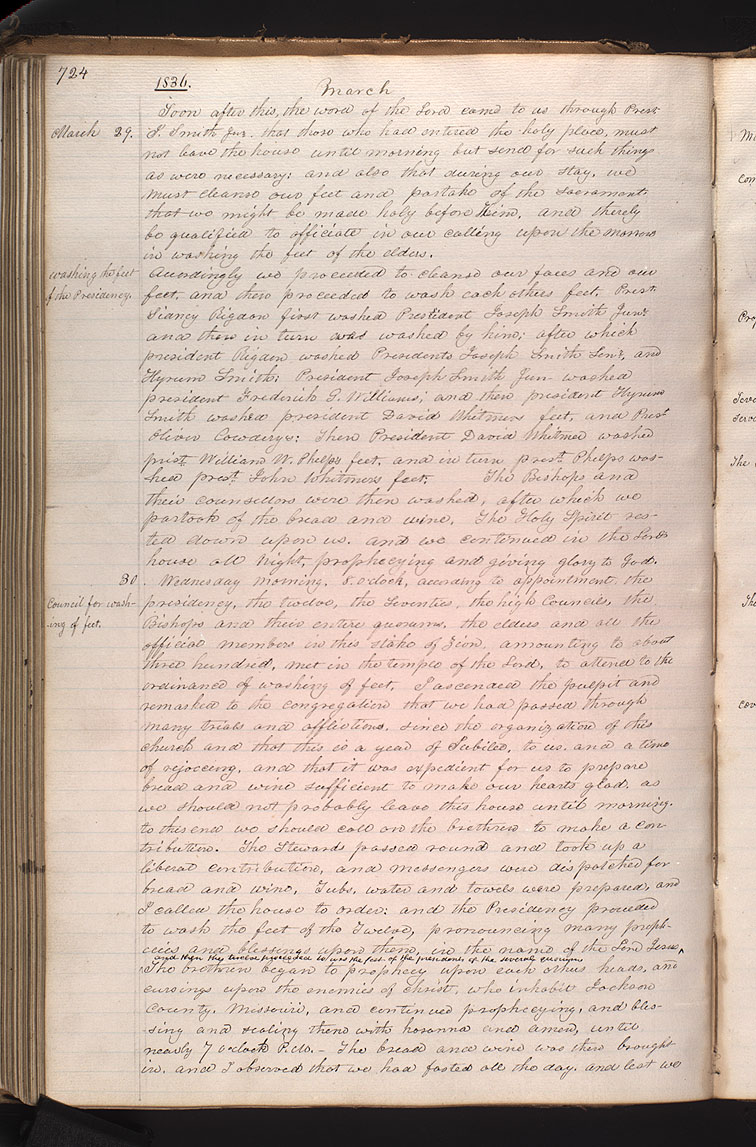 724
1836.
March
Soon after this, the word of the Lord came to us through Prest.
March 29. J. Smith Jun. that those who had entered the holy place, must
not leave the house until morning but send for such things
as were necessary; and also that during our stay, we
must cleanse our feet and partake of the sacrament,
that we might be made holy before Him, and thereby
be qualified to officiate in our calling upon the morrow
in washing the feet of the elders.
washing the feet Accordingly we proceeded to cleanse our faces and our
of the Presidency. feet, and then proceeded to wash each others feet. Prest.
Sidney Rigdon first washed President Joseph Smith Jun's
and then in turn was washed by him; after which
president Rigdon washed Presidents Joseph Smith Sen.r, and
Hyrum Smith; President Joseph Smith Jun washed
president Frederick G. Williams; and then president Hyrum
Smith washed president David Whitmers feet, and Prest
Oliver Cowderys: Then President David Whitmer washed
prest. William W. Phelps feet, and in turn prest. Phelps was-
hed prest. John Whitmers feet. The Bishops and
their counsellors were then washed, after which we
partook of the bread and wine. The Holy Spirit res-
ted down upon us. and we continued in the Lords
house all night, prophecying and giving glory to God.
30. Wednesday morning, 8. o,clock, according to appointment, the
Council for wash- presidency, the twelve, the Seventies, the high Councils, the
ing of feet. Bishops and their entire quorums, the elders and all the
official members in this stake of Zion, amounting to about
three hundred, met in the temple of the Lord, to attend to the
ordinance of washing of feet. I ascended the pulpit and
remarked to the congregation that we had passed through
many trials and afflictions, since the organization of this
church and that this is a year of Jubilee, to us. and a time
of rejoceing, and that it was expedient for us to prepare
bread and wine sufficient to make our hearts glad. as
we should not probably leave this house until morning.
to this end we should call on the brethren to make a con-
tribution. The Stewards passed round and took up a
liberal contribution, and messengers were dispatched for
bread and wine. Tubs, water and towels were prepared, and
I called the house to order: and the Presidency proceeded
to wash the feet of the Twelve, pronouncing many proph-
ecies and blessings upon them, in the name of the Lord Jesus,
and then the twelve proceeded to wash the feet of the presidents of the several quorums
The brethren began to prophecy upon each others heads, and
cursings upon the enemies of christ, who inhabit Jackson
County, Missouri, and continued prophecying, and bles-
sing and sealing them with hosanna and amen, until
nearly 7 o'clock P.M. – The bread and wine was then brought
in. and I observed that we had fasted all the day. and lest we